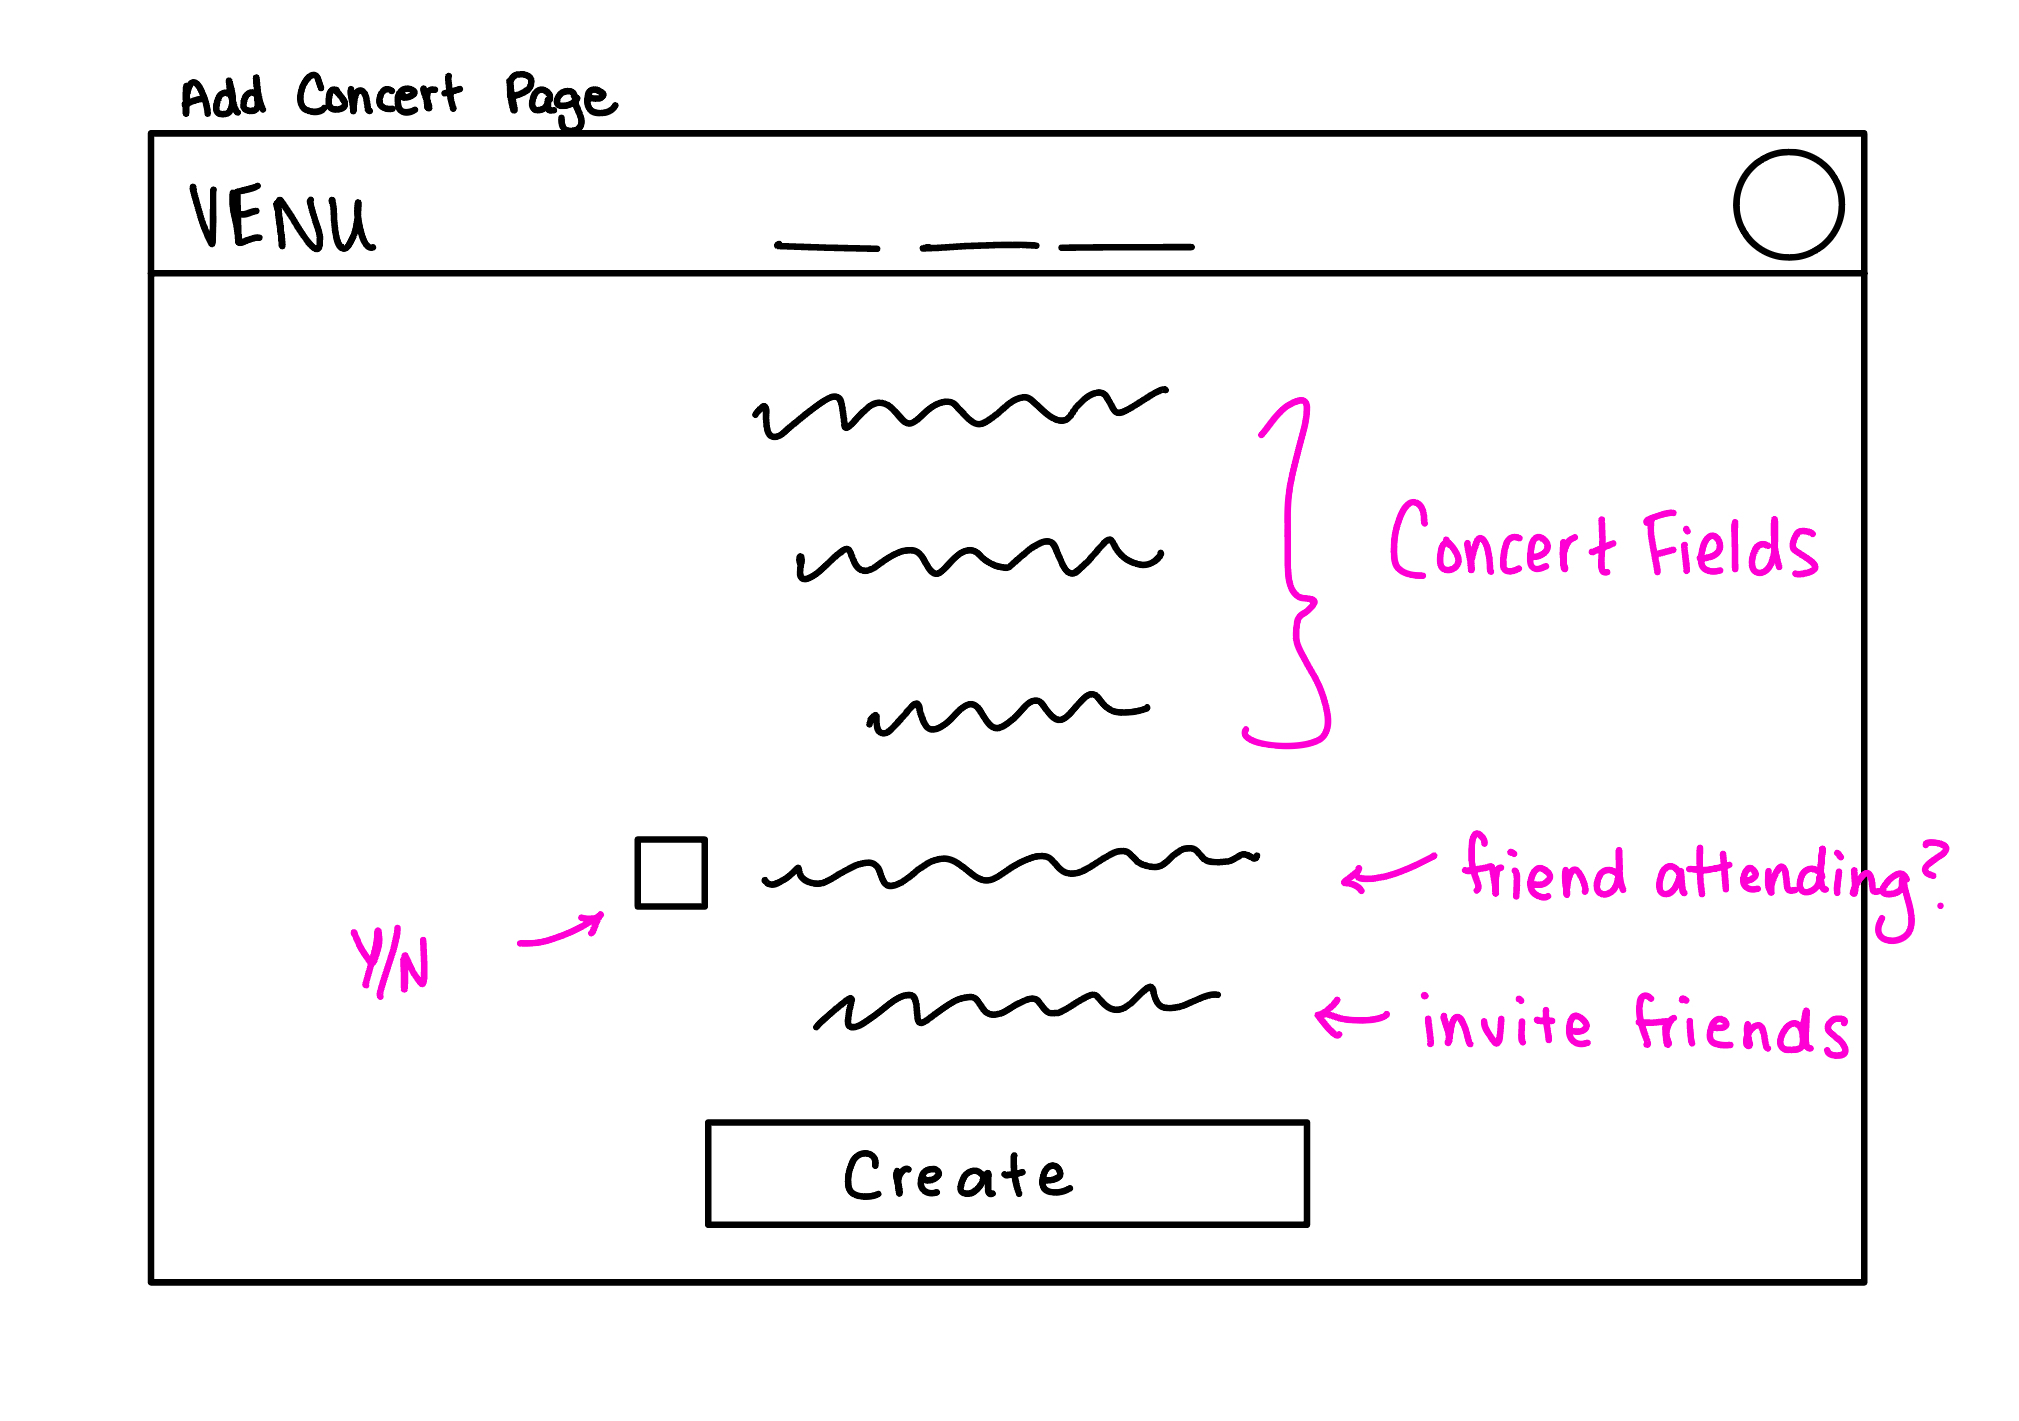 Add Concert Page
VENU
Concert Fields
friend attending?
Y/N
invite friends
Create